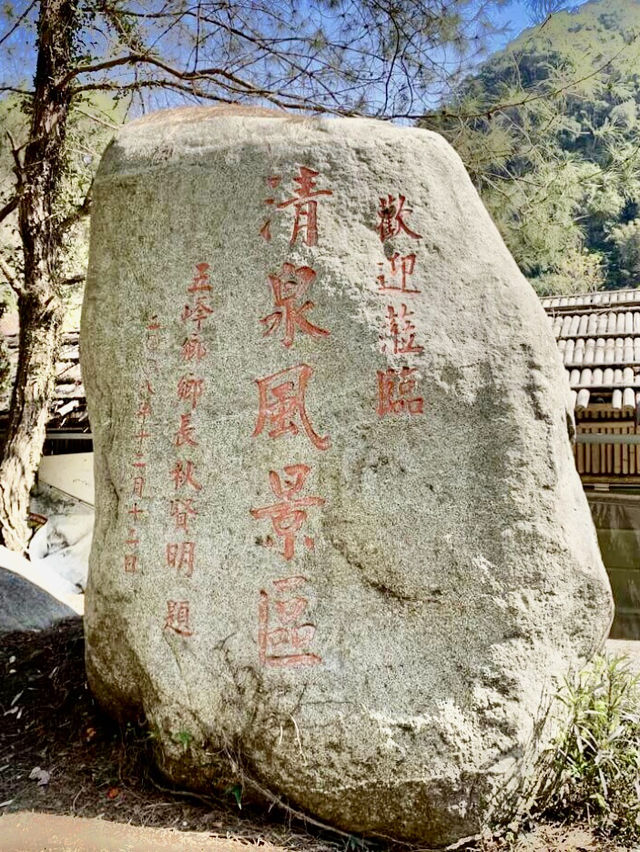 歡迎蒞臨
清泉風景區
五峰鄉鄉長秋賢明題
二〇〇八年十二月十二日